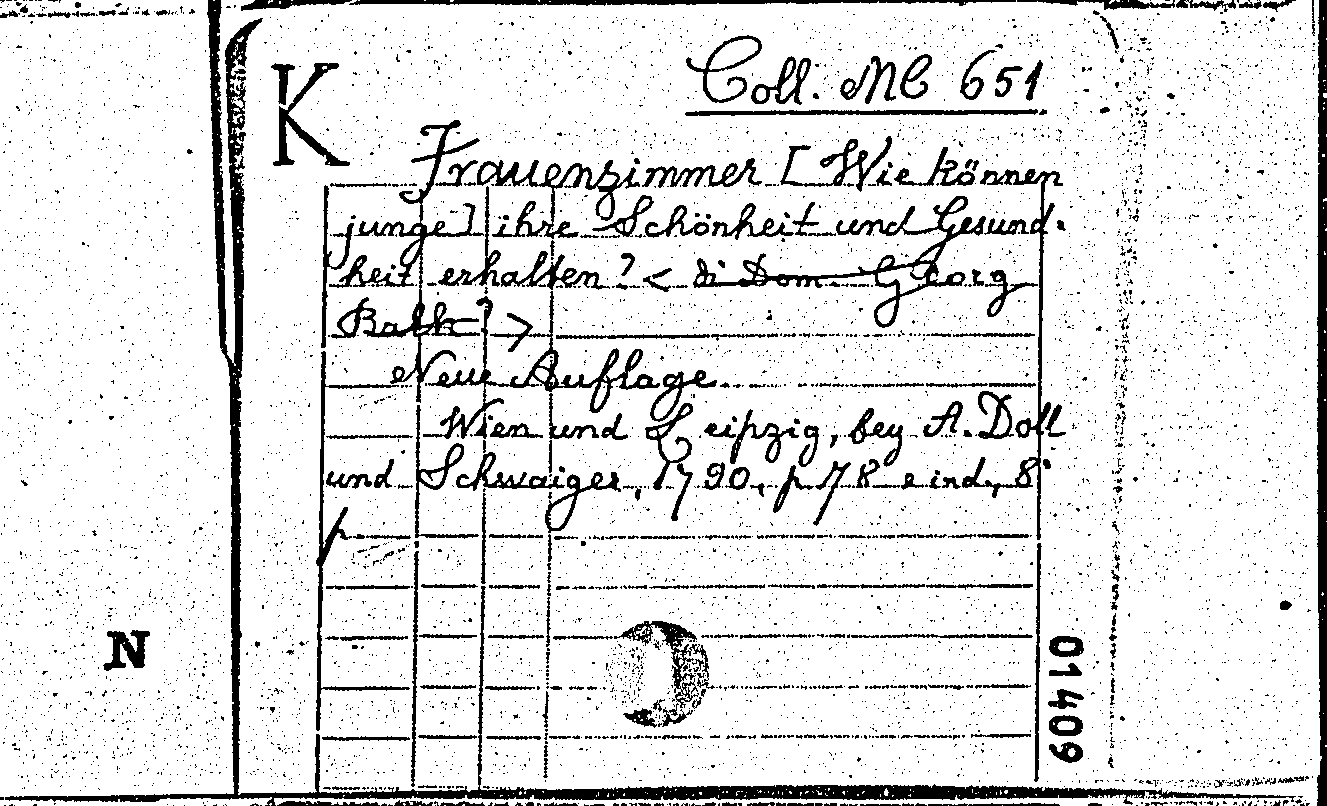 K
Coll. MC 651
Frauenzimmer [Wie können
junge] ihre Schönheit und Gesund-
heit erhalten? < di Dom. Georg
Balth? >
Neue Auflage.
Wien und Leipzig, bey A. Doll
und Schwaiger, 1790, p 78 e ind., 8°
p
N
01409